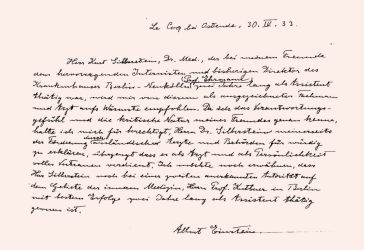 Le Coq bei Ostende, 30. IV. 33.
Herr Kurt Silberstein, Dr. Med., der bei meinem Freunde
dem hervorragenden Internisten und bisherigen Direktor des
Prof. Ehrmann
Krankenhauses Berlin-Neukölln zwei Jahre lang als Assistent
thätig war, wird mir von diesem als ausgezeichneter Fachmann
und Arzt aufs Wärmste empfohlen. Da ich das Verantwortungs-
gefühl und die kritische Natur meines Freundes genau kenne,
halte ich mich für berechtigt, Herrn Dr. Silberstein meinerseits
der Förderung durch ausländische Ärzte und Behörden für würdig
zu erklären, überzeugt dass er als Arzt und als Persönlichkeit
volles Vertrauen verdient. Ich möchte noch erwähnen, dass
Herr Silberstein noch bei einer zweiten anerkannten Autorität auf
dem Gebiete der inneren Medizin, Herrn Prof. in Berlin
mit bestem Erfolge zwei Jahre lang als Assistent thätig
gewesen ist.
Albert Einstein.